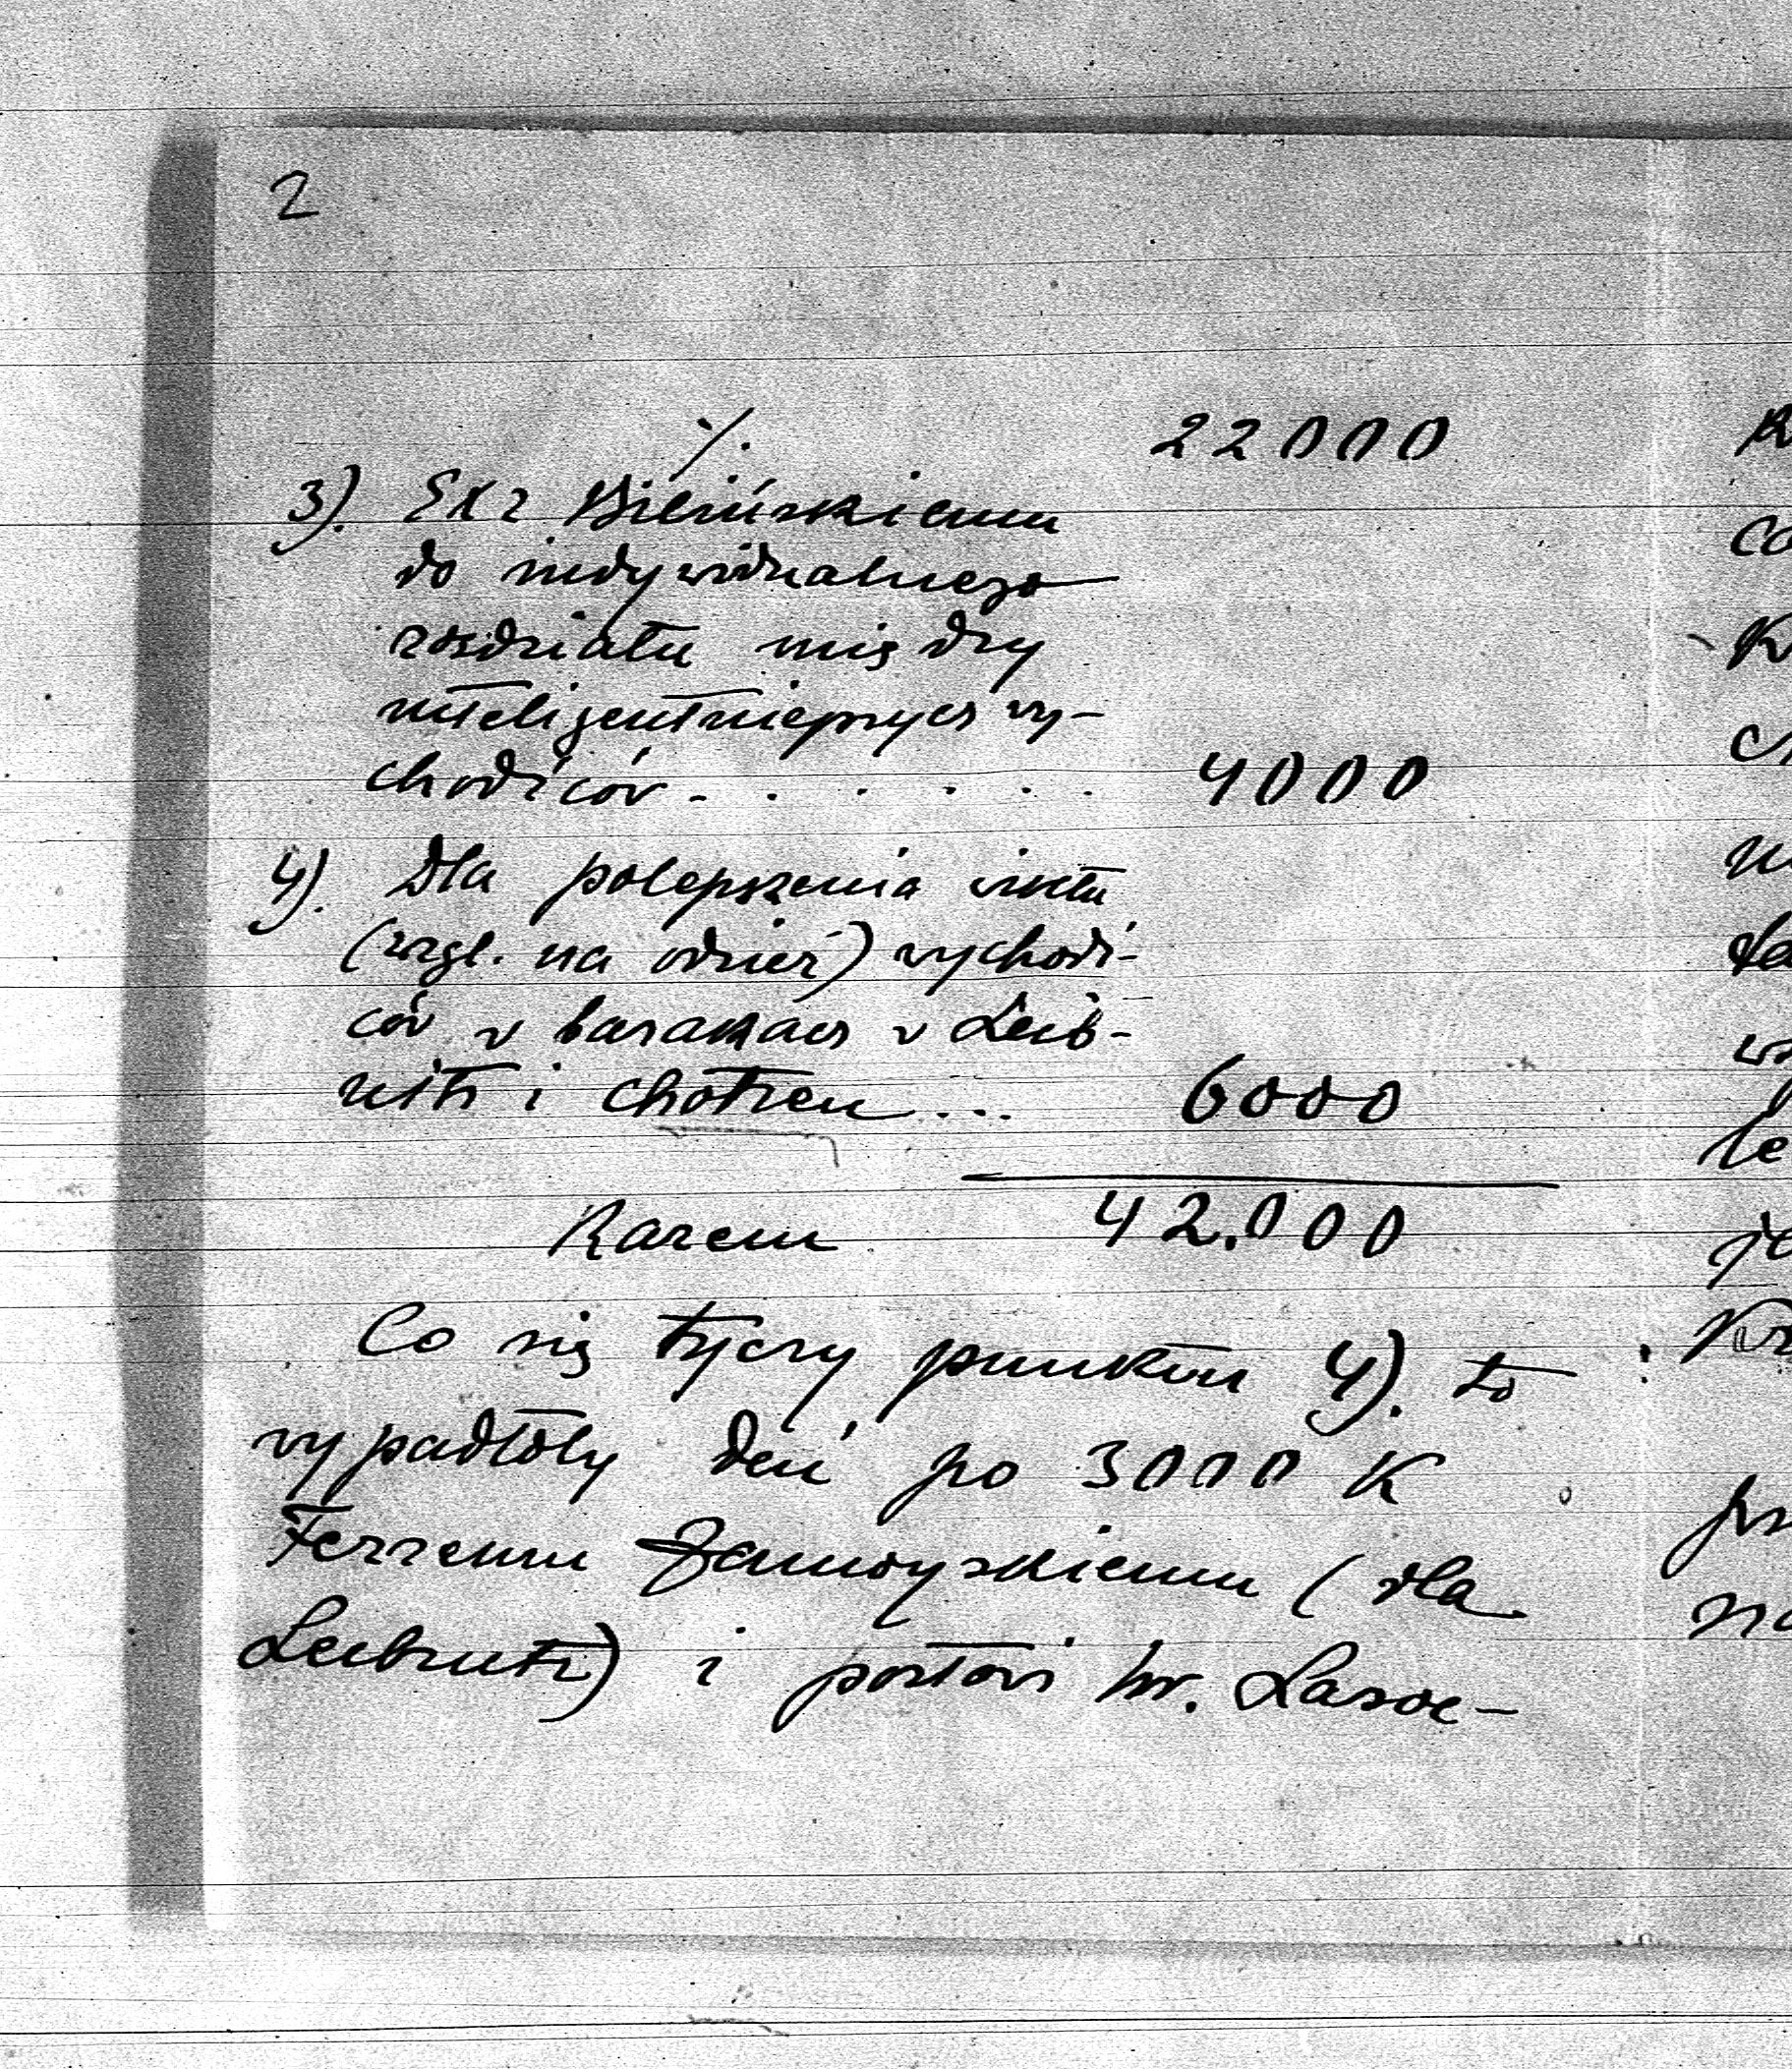 2
./. 22000
3). Exc Bilińskiemu
do indywidualnego
rozdziału między
inteligentniejszych wy-
chodźców - . . . . . 4000
4). Dla polepszenia wiktu
(wzgl. na odzież) wychodź-
ców w barakach w Leib-
nitz i Chotzen ... 6000
Razem 42.000
Co się tyczy punktu 4). to
wypadłoby dać po 3000 K
Ferzemu Zamoyskiemu (dla
Leibnitz) i posłowi hr. Lasoc-